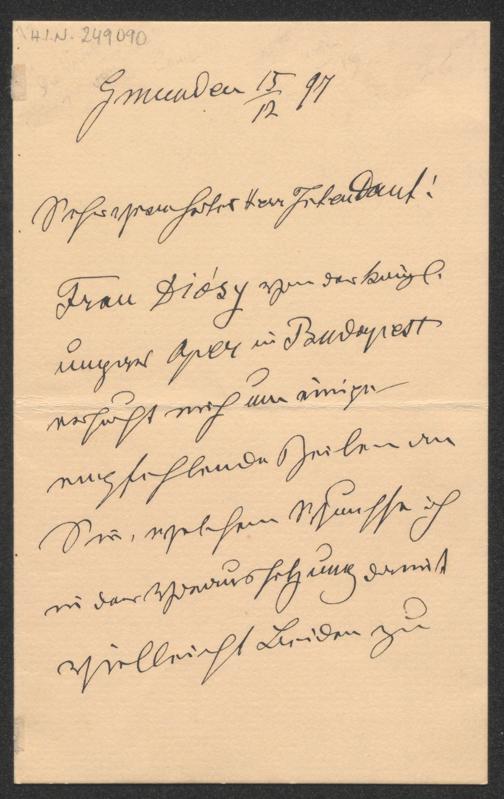 H.I.N. 249090
Gmunden 15/12 97
Sehr verehrter Herr Intendant!
Frau Diósy von der königl.
ungar Oper in Budapest
ersucht mich um einige
empfehlende Zeilen an
Sie, welchem Wunsche ich
in der Voraussetzung damit
vielleicht Beiden zu